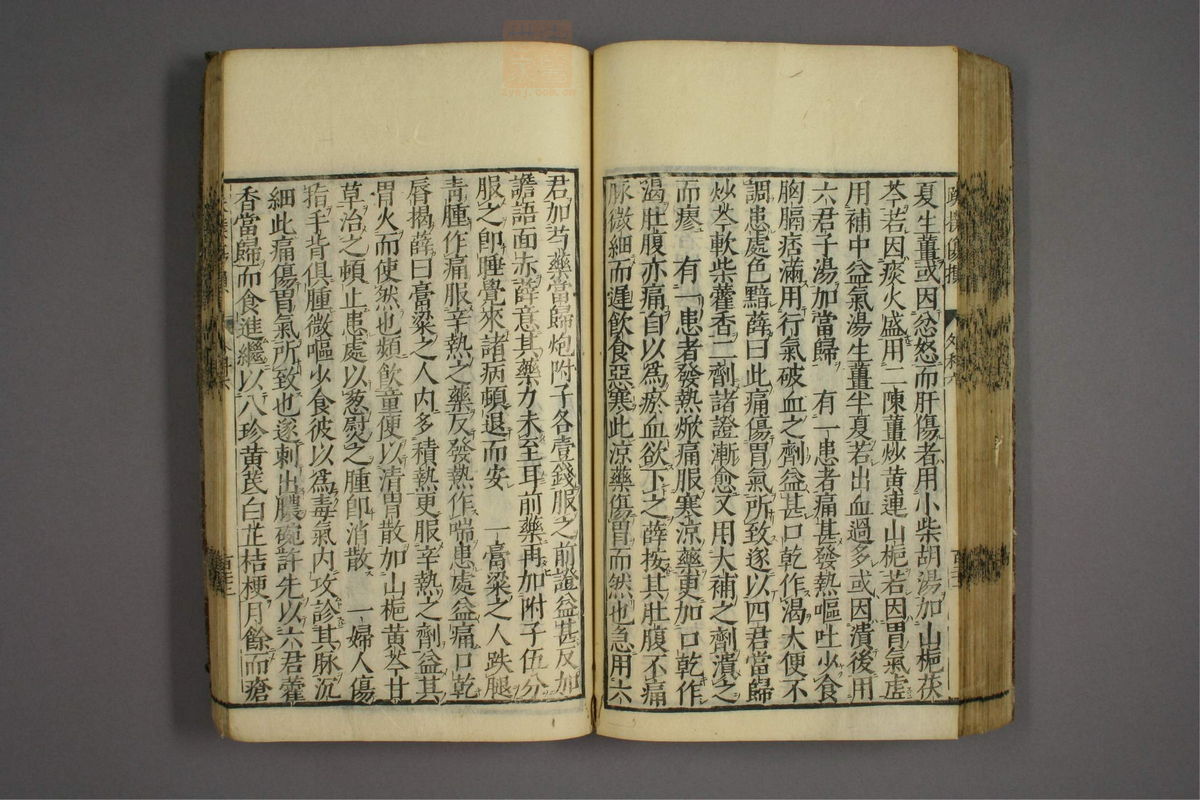 夏生薑或因忿怒而肝傷者用小柴胡湯加山梔茯
苓若因痰火盛用二陳薑炒黃連山梔若因胃氣虛
用補中益氣湯生薑半夏若出血過多或因潰後用
六君子湯加當歸　有一患者痛甚發熱嘔吐少食
胸膈痞滿用行氣破血之劑益甚口乾作渴大便不
調患處色黯薛曰此痛傷胃氣所致遂以四君當歸
炒芩軟柴藿香二劑諸證漸愈又用大補之劑潰之
而瘳　有一患者發熱焮痛服寒涼藥更加口乾作
渴肚腹亦痛自以為瘀血欲下之薛按其肚腹不痛
脉微細而遲飲食惡寒此涼藥傷胃而然也急用六
君加芍藥當歸炮附子各壹錢服之前證益甚反加
譫語面赤薛意其藥力未至耳前藥再加附子伍分
服之卽睡覺來諸病頓退而安　一膏粱之人跌腿
青腫作痛服辛熱之藥反發熱作喘患處益痛口乾
唇揭薛曰膏粱之人內多積熱更服辛熱之劑益其
胃火而使然也頻飲童便以清胃散加山梔黃芩甘
草治之頓止患處以葱熨之腫卽消散　一婦人傷
指手背俱腫微嘔少食彼以為毒氣內攻診其脉沉
細此痛傷胃氣所致也遂刺出膿碗許先以六君藿
香當歸而食進繼以八珍黃芪白芷桔梗月餘而瘡